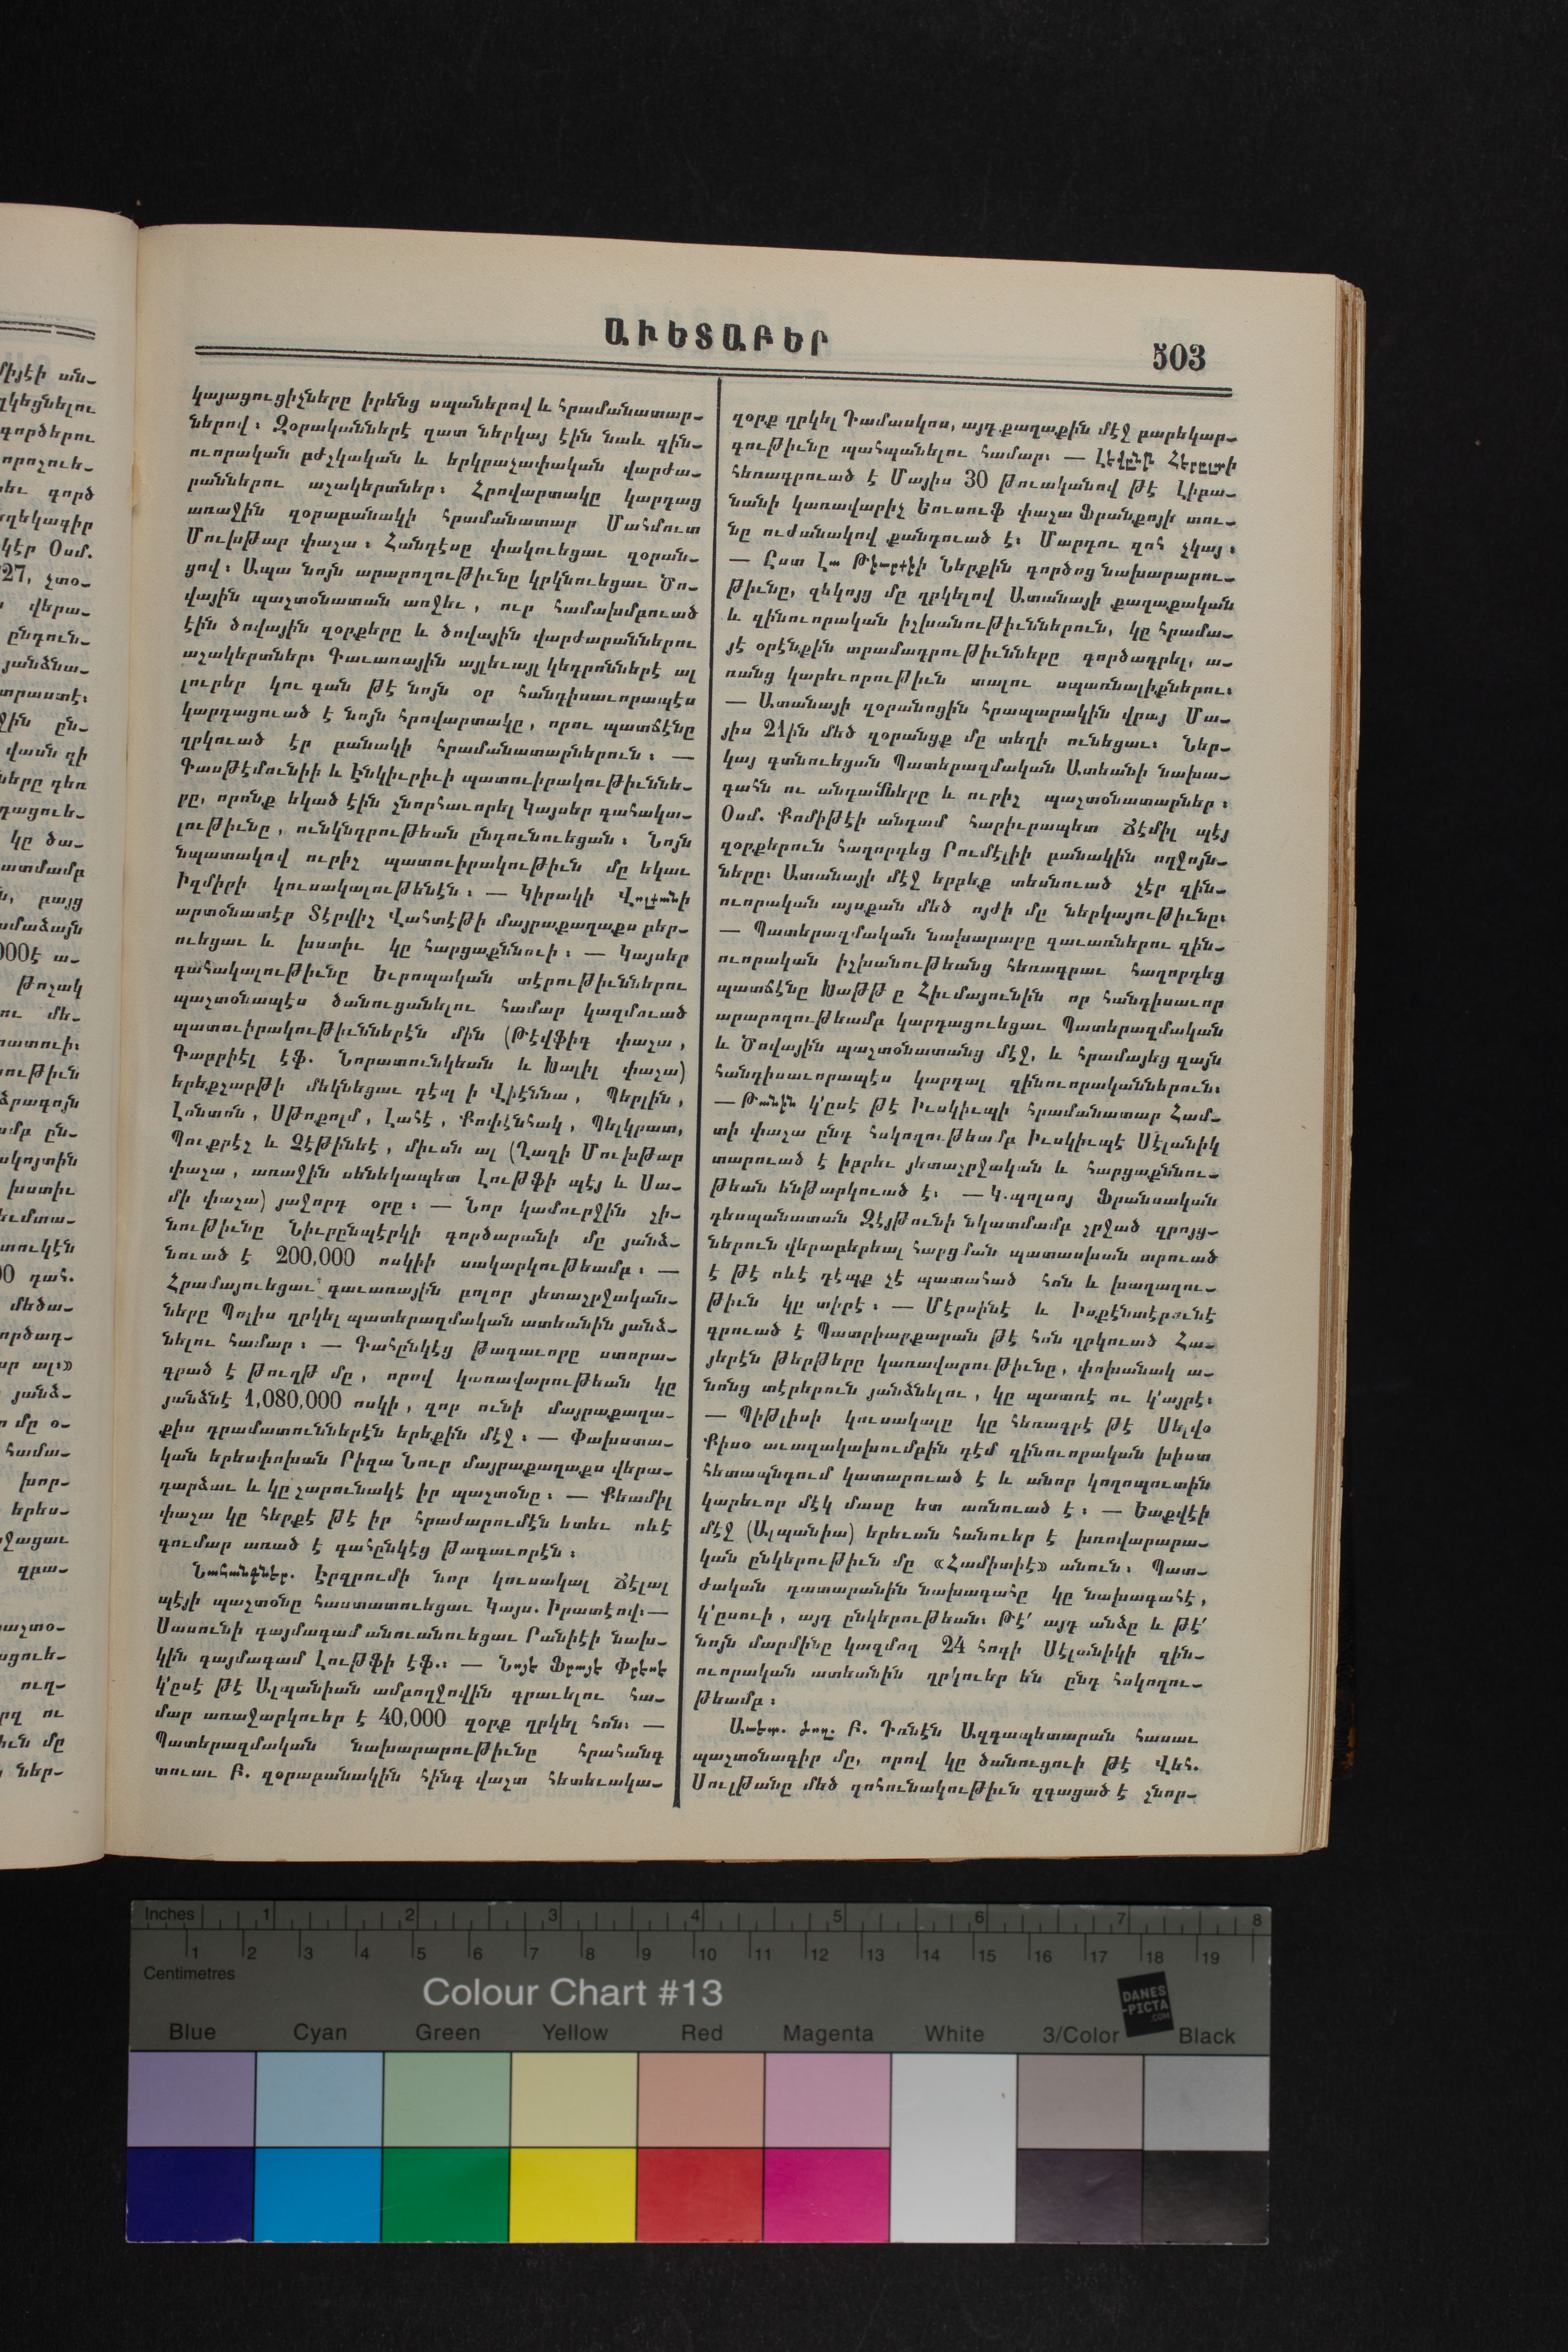 ԱՒԵՏԱԲԵՐ
503
կայացուցիչները իրենց սպաներով և հրամանատար-
ներով։ Զօրականներէ զատ ներկայ էին նաև զին-
ուորական բժշկական և երկրաչափական վարժա-
րաններու աշակերտներ։ Հրովարտակը կարդաց
առաջին զօրաբանակի հրամանատար Մահմուտ
Մուխթար փաշա։ Հանդէսը փակուեցաւ զօրան-
ցով։ Ապա նոյն արարողութիւնը կրկնուեցաւ Ծո-
վային պաշտօնատան առջեւ, ուր համախմբուած
էին ծովային զօրքերը և ծովային վարժարաններու
աշակերտներ։ Գաւառային այլեւայլ կեդրոններէ ալ
լուրեր կու գան թէ նոյն օր հանդիսաւորապէս
կարդացուած է նոյն հրովարտակը, որու պատճէնը
ղրկուած էր բանակի հրամանատարներուն։ —
Գասթէմունիի և Էնկիւրիւի պատուիրակութիւննե-
րը, որոնք եկած էին շնորհաւորել Կայսեր գահակա-
լութիւնը, ունկնդրութեան ընդունուեցան։ Նոյն
նպատակով ուրիշ պատուիրակութիւն մը եկաւ
Իզմիրի կուսակալութենէն։ — Կիրակի Վոլքանի
արտօնատէր Տէրվիշ Վահտէթի մայրաքաղաքս բեր-
ուեցաւ և խստիւ կը հարցաքննուի։ — Կայսեր
գահակալութիւնը Եւրոպական տէրութիւններու
պաշտօնապէս ծանուցանելու համար կազմուած
պատուիրակութիւններէն մին (Թէվֆիգ փաշա,
Գաբրիէլ էֆ. Նորատունկեան և Խալիլ փաշա)
երեքշաբթի մեկնեցաւ դէպ ի Վիէննա, Պերլին,
Լոնտոն, Սթոքոլմ, Լահէ, Քոփէնհակ, Պելկրատ,
Պուքրէշ և Չէթինեէ, միւսն ալ (Ղազի Մուխթար
փաշա, առաջին սենեկապետ Լութֆի պէյ և Սա-
մի փաշա) յաջորդ օրը։ — Նոր կամուրջին շի-
նութիւնը Նիւրընպէրկի գործարանի մը յանձ-
նուած է 200,000 ոսկիի սակարկութեամբ։ —
Հրամայուեցաւ գաւառային բոլոր յետաշրջական-
ները Պոլիս ղրկել պատերազմական ատեանին յանձ-
նելու համար։ — Գահընկէց թագաւորը ստորա-
գրած է թուղթ մը, որով կառավարութեան կը
յանձնէ 1,080,000 ոսկի, զոր ունի մայրաքաղա-
քիս դրամատուններէն երեքին մէջ։ — Փախստա-
կան երեսփոխան Րիզա Նուր մայրաքաղաքս վերա-
դարձաւ և կը շարունակէ իր պաշտօնը։ — Քեամիլ
փաշա կը հերքէ թէ իր հրաժարումէն ետեւ ոեւէ
գումար առած է գահընկէց թագաւորէն։
Նահանգներ. Էրզրումի նոր կուսակալ Ճէլալ
պէյի պաշտօնը հաստատուեցաւ Կայս. Իրատէով։—
Սասունի գայմագամ անուանուեցաւ Րանիէի նախ-
կին գայմագամ Լութֆի էֆ.։ — Նոյե Ֆրայե Փրեսե
կ՚ըսէ թէ Ալպանիան ամբողջովին գրաւելու հա-
մար առաջարկուեր է 40,000 զօրք ղրկել հոն։ —
Պատերազմական նախարարութիւնը հրահանգ
տուաւ Բ. զօրաբանակին հինգ վաշտ հետեւակա-
զօրք ղրկել Դամասկոս, այդ քաղաքին մէջ բարեկար-
գութիւնը պահպանելու համար։ — Լեվընթ Հերալտի
հեռագրուած է Մայիս 30 թուականով թէ Լիբա-
նանի կառավարիչ Եուսուֆ փաշա Ֆրանքոյի տու-
նը ուժանակով քանդուած է։ Մարդու զոհ չկայ։
— Ըստ Լա Թիւրքիի Ներքին գործոց նախարարու-
թիւնը, զեկոյց մը ղրկելով Ատանայի քաղաքական
և զինուորական իշխանութիւններուն, կը հրամա-
յէ օրէնքին տրամադրութիւնները գործադրել, ա-
ռանց կարեւորութիւն տալու սպառնալիքներու։
— Ատանայի զօրանոցին հրապարակին վրայ Մա-
յիս 21ին մեծ զօրանցք մը տեղի ունեցաւ։ Ներ-
կայ գտնուեցան Պատերազմական Ատեանի նախա-
գահն ու անդամները և ուրիշ պաշտօնատարներ։
Օսմ. Քոմիթէի անդամ հարիւրապետ Ճէմիլ պէյ
զօրքերուն հաղորդեց Րումէլիի բանակին ողջոյն-
ները։ Ատանայի մէջ երբեք տեսնուած չէր զին-
ուորական այսքան մեծ ոյժի մը ներկայութիւնը։
— Պատերազմական նախարարը գաւառներու զին-
ուորական իշխանութեանց հեռագրաւ հաղորդեց
պատճէնը Խաթթ ը Հիւմայունին որ հանդիսաւոր
արարողութեամբ կարդացուեցաւ Պատերազմական
և Ծովային պաշտօնատանց մէջ, և հրամայեց զայն
հանդիսաւորապէս կարդալ զինուորականներուն։
— Թանին կ՚ըսէ թէ Իւսկիւպի հրամանատար Համ-
տի փաշա ընդ հսկողութեամբ Իւսկիւպէ Սէլանիկ
տարուած է իբրեւ յետաշրջական և հարցաքննու-
թեան ենթարկուած է։ — Կ.պոլսոյ Ֆրանսական
դեսպանատան Զէյթունի նկատմամբ շրջած զրոյց-
ներուն վերաբերեալ հարցման պատասխան տրուած
է թէ ոեւէ դէպք չէ պատահած հոն և խաղաղու-
թիւն կը տիրէ։ — Մէրսինէ և Իսքէնտէրունէ
գրուած է Պատրիարքարան թէ հոն ղրկուած Հա-
յերէն թերթերը կառավարութիւնը, փոխանակ ա-
նոնց տէրերուն յանձնելու, կը պատռէ ու կ՚այրէ։
— Պիթլիսի կուսակալը կը հեռագրէ թէ Սելվօ
Քիսօ աւազակախումբին դէմ զինուորական խիստ
հետապնդում կատարուած է և անոր կողոպուտին
կարեւոր մէկ մասը ետ առնուած է։ — Եաքվէի
մէջ (Ալպանիա) երեւան հանուեր է խռովարարա-
կան ընկերութիւն մը «Համիտիէ» անուն։ Պատ-
ժական դատարանին նախագահը կը նախագահէ,
կ՚ըսուի, այդ ընկերութեան։ Թէ՛ այդ անձը և թէ՛
նոյն մարմինը կազմող 24 հոգի Սէլանիկի զին-
ուորական ատեանին ղրկուեր են ընդ հսկողու-
թեամբ։
Աւետ. ժող. Բ. Դռնէն Ազգապետարան հասաւ
պաշտօնագիր մը, որով կը ծանուցուի թէ Վեհ.
Սուլթանը մեծ գոհունակութիւն զգացած է շնոր-
միյէի ան-
ղկեցնելու
գործերու
որոշուե-
րեւ գործ
ղեկագիր
կէր Օսմ.
27, շտօ-
վերա-
ընդուն-
յանձնա-
տրաստէ։
ջին ըն-
վասն զի
ները դեռ
դացուե-
կը ծա-
ատմամբ
ն, բայց
ամաձայն
000է ա-
թոշակ
ու մե-
ութիւն
ձրագոյն
ամբ ըն-
սկոյտին
խստիւ
եւմտա-
տուկէն
00 դահ.
մեծա-
ործադ-
ար ալ։»
յանձ-
ր մը օ-
համա-
խոր-
երես-
ջացաւ
գրա-
աշտօ-
ացուե-
ուղ-
րդ ու
իւն մը
ներ-
Inches 1 2 3 4 5 6 7 8
1 2 3 4 5 6 7 8 9 10 11 12 13 14 15 16 17 18 19
Centimetres
Colour Chart #13
DANES
-PICTA
.COM
Blue Cyan Green Yellow Red Magenta White 3/Color Black